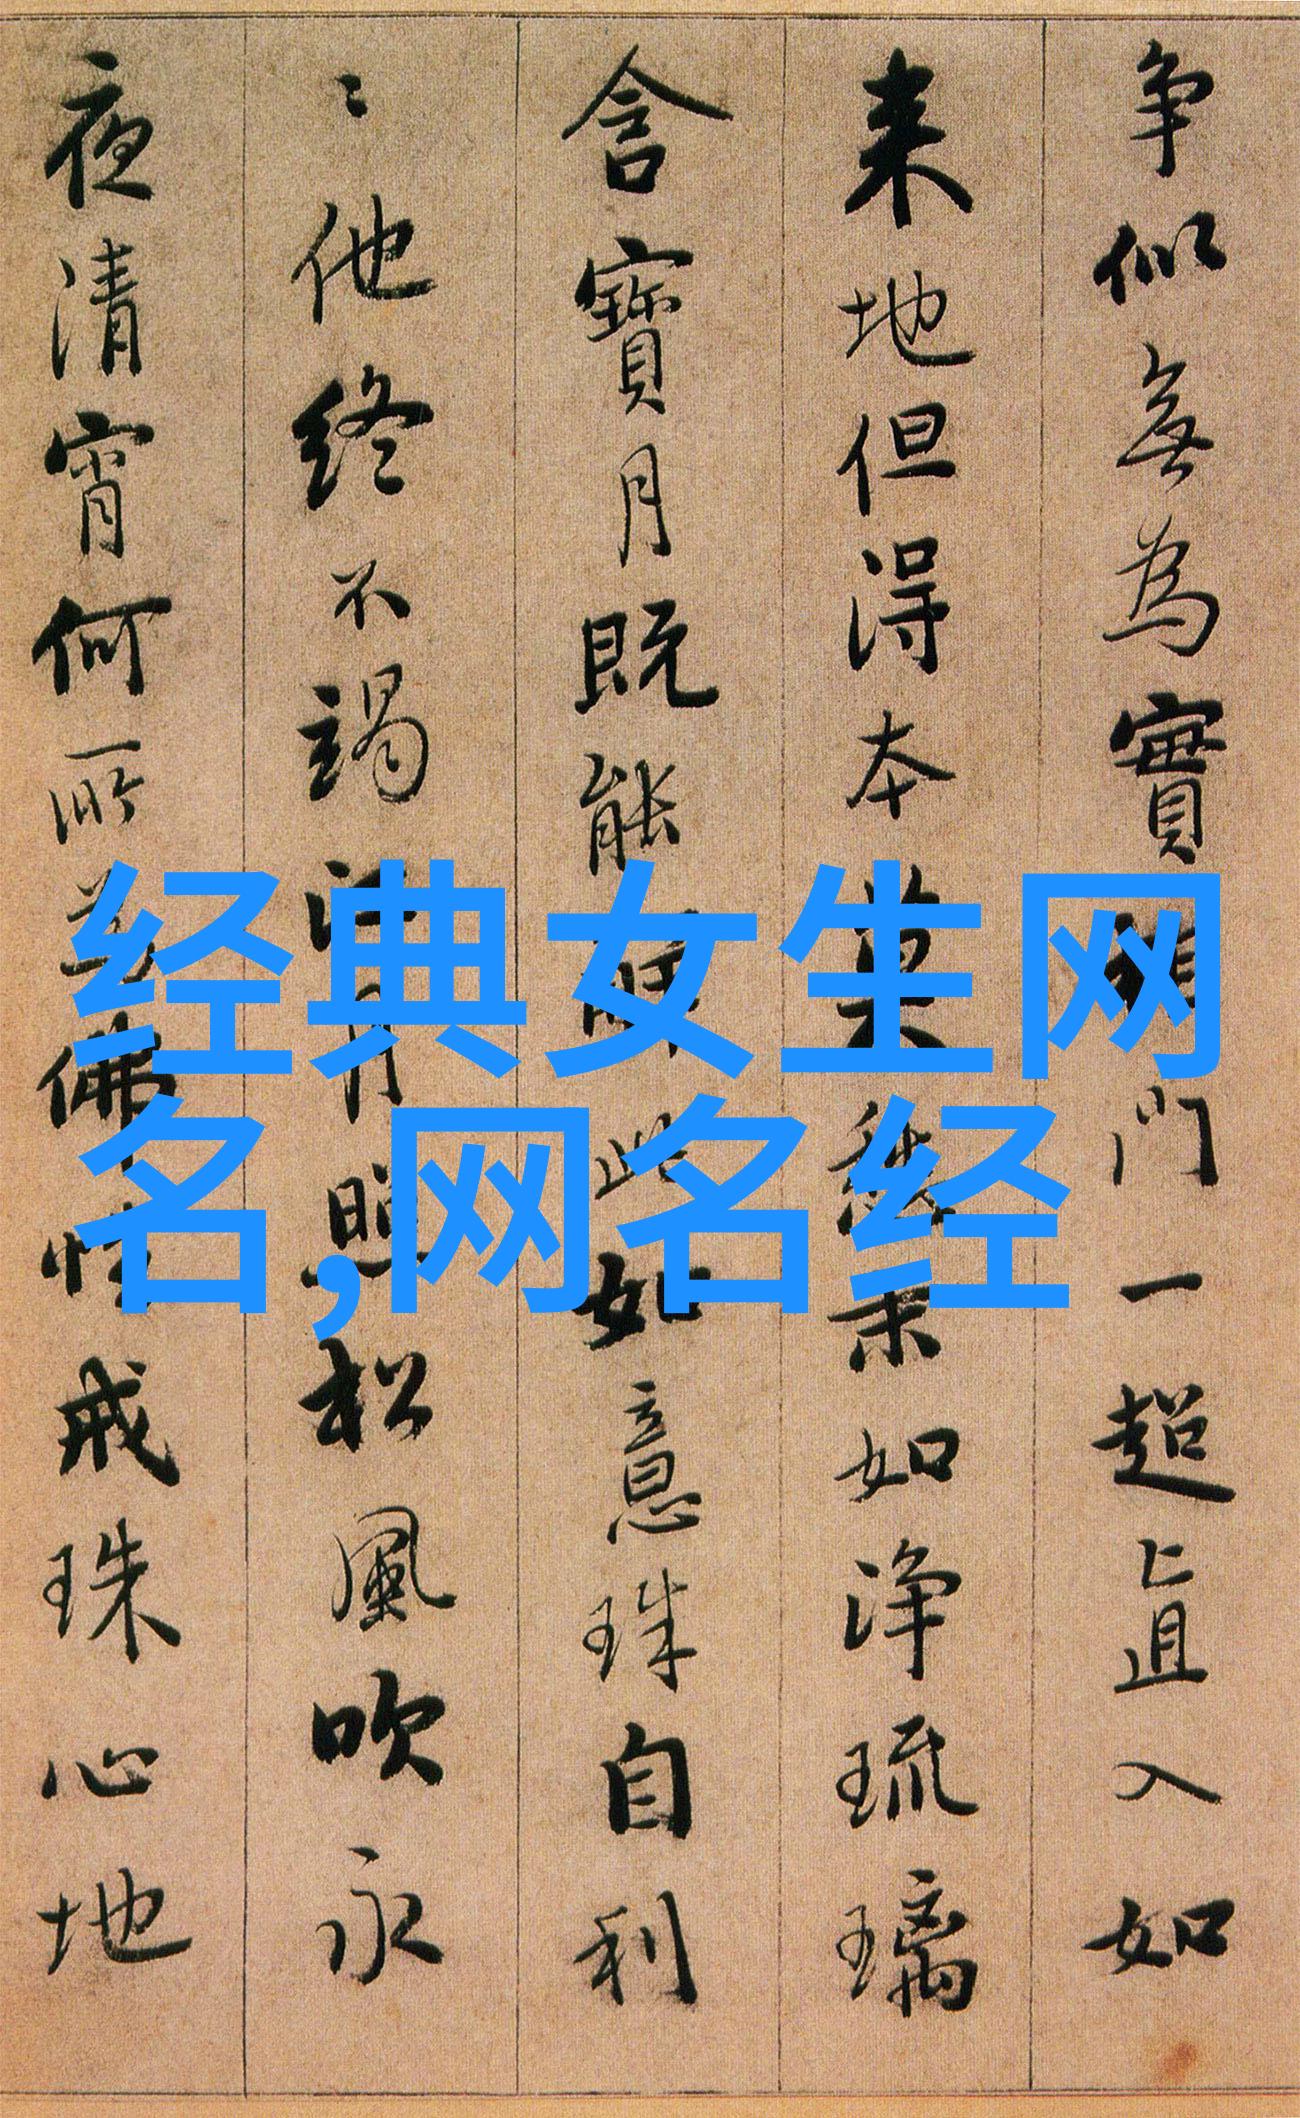 争似無為實相門一超直入如
来地但得本莫愁末如浄琉璃
含寶月既能解此如意珠自利
〻他終不竭江月照松風吹永
夜清宵何所為佛性戒珠心地
经典女生网
名,网名经